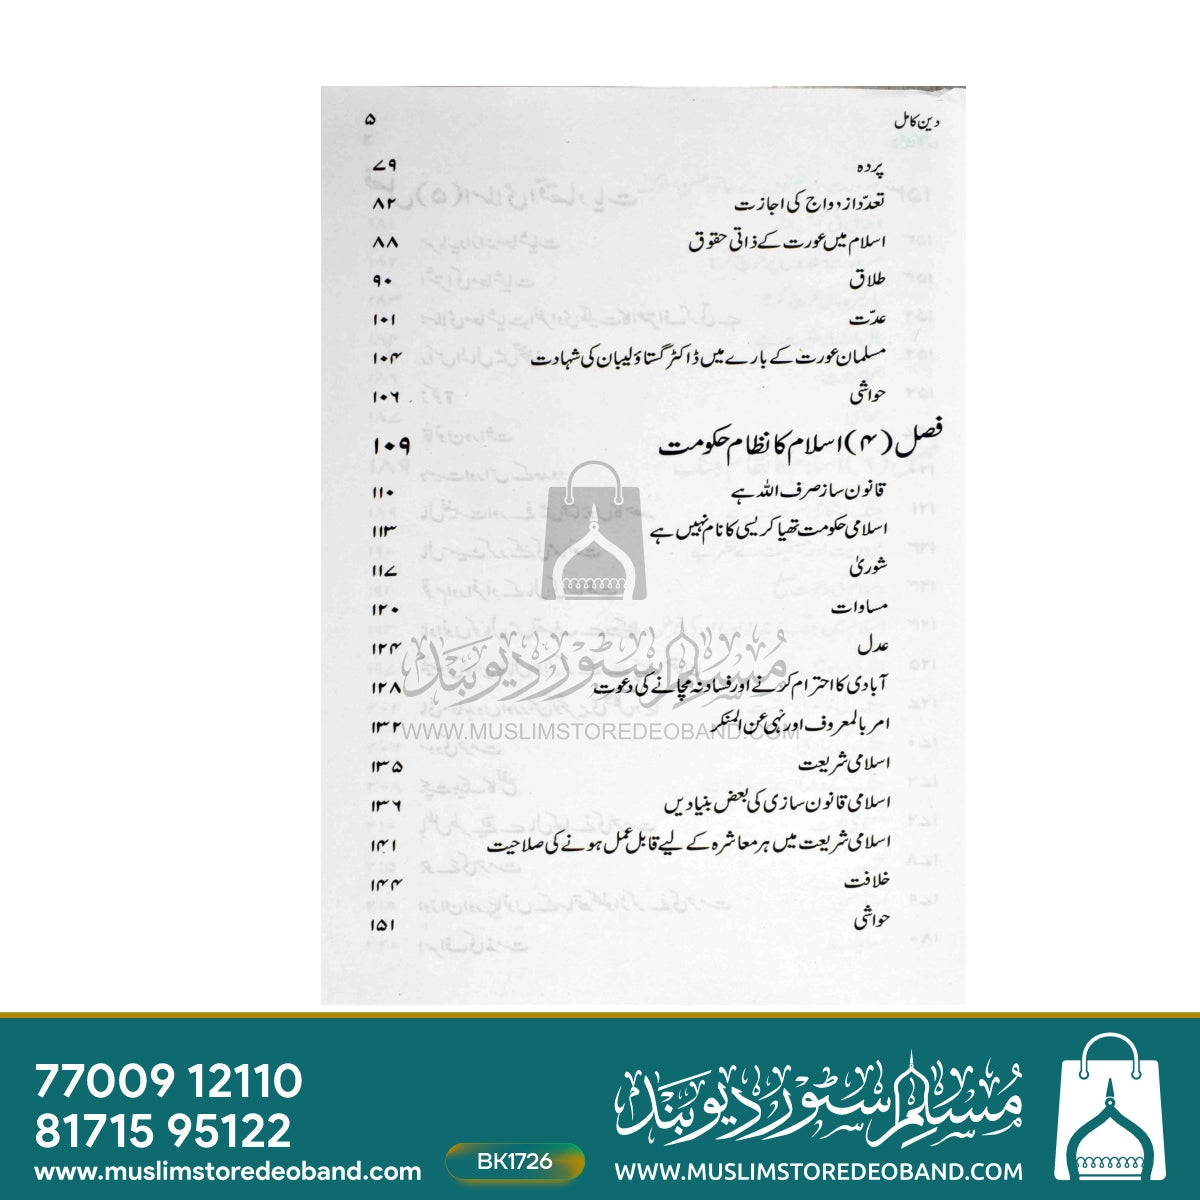 دین کامل ۵
پردہ ۷۹
تعدّد ازدواج کی اجازت ۸۲
اسلام میں عورت کے ذاتی حقوق ۸۸
طلاق ۹۰
عدّت ۱۰۱
مسلمان عورت کے بارے میں ڈاکٹر گستاؤلیبان کی شہادت ۱۰۴
حواشی ۱۰۶
فصل (۴) اسلام کا نظام حکومت ۱۰۹
قانون ساز صرف اللہ ہے ۱۱۰
اسلامی حکومت تھیاکریسی کا نام نہیں ہے ۱۱۳
شوریٰ ۱۱۷
مساوات ۱۲۰
عدل ۱۲۴
آبادی کا احترام کرنے اور فساد نہ مچانے کی دعوت ۱۲۸
امر بالمعروف اور نہی عن المنکر ۱۳۲
اسلامی شریعت ۱۳۵
اسلامی قانون سازی کی بعض بنیادیں ۱۳۶
اسلامی شریعت میں ہر معاشرہ کے لیے قابل عمل ہونے کی صلاحیت ۱۴۱
خلافت ۱۴۴
حواشی ۱۵۱
مسلم سٹور دیوبند
WWW.MUSLIMSTOREDEOBAND.COM
77009 12110
81715 95122
www.muslimstoredeoband.com
BK1726
مسلم سٹور دیوبند
WWW.MUSLIMSTOREDEOBAND.COM